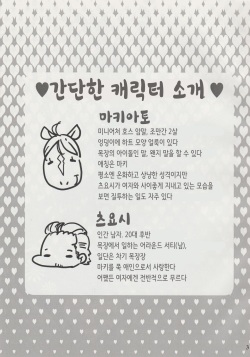 ♥간단한 캐릭터 소개♥
마키아토
미니어처 호스 암말, 조만간 2살
엉덩이에 하트 모양 얼룩이 있다
목장의 아이돌인 말, 왠지 말을 할 수 있다
애칭은 마키
평소엔 온화하고 상냥한 성격이지만
츠요시가 여자와 사이좋게 지내고 있는 모습을
보면 질투하는 일도 자주 있다
츠요시
인간 남자, 20대 후반
목장에서 일하는 어라운드 서티(남),
일단은 차기 목장장
마키를 쭉 애인으로서 사랑한다
어쨌든 여자에겐 전반적으로 무르다